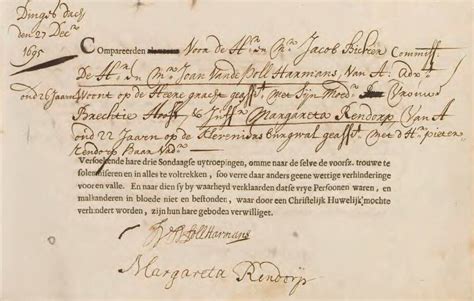 Dingsdach
den 27 Decr
1695
Compareerden Voor de Hr en Mr Jacob Bicker Commiss.
De Hr en Mr Joan Vande Poll Harmans, Van A: dr
oud 26 Jaaren Woont op de Heere gracht geasst met Syn Moed. Vrouw
Brechtie Hooft & Juffr Margareta Rendorp Van A
oud 22 Jaarn op de Burgwal geasst met d Hr pieter
Rendorp Haar Vader
Versoekende hare drie Sondaagse uytroepingen, omme naar de selve de voorsz. trouwe te
solemniseren en in alles te voltrekken, soo verre daar anders geene wettige verhinderinge
vooren valle. En naar dien sy by waarheyd verklaarden datse vrye Persoonen waren, en
malkanderen in bloede niet en bestonden, waar door een Christelijk Huwelijk mochte
verhindert worden, zijn hun hare geboden verwilliget.
Poll Harmans
Margareta Rendorp